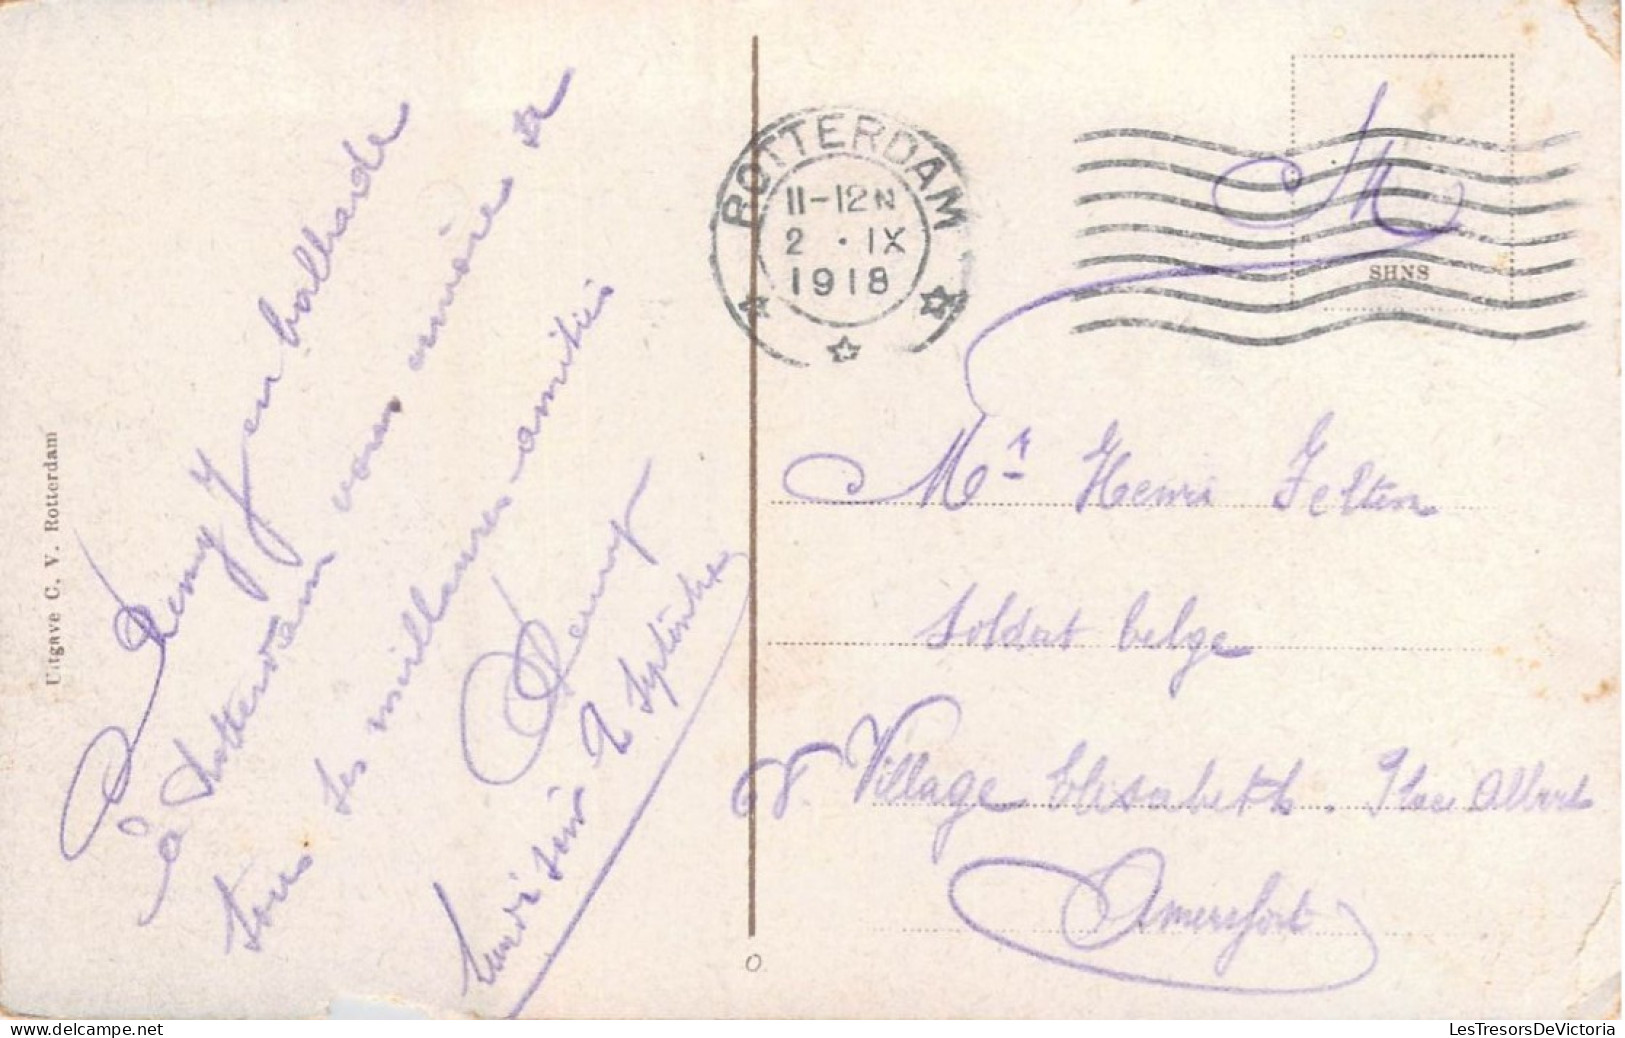 Remy en ballade
à Rotterdam vous envoie à
tous ses meilleures amitiés
Remy
lundi soir 2 septembre
Uitgave C. V. Rotterdam
ROTTERDAM
11-12 N
2 . IX
1918
SHNS
Mr Henri Felten
Soldat belge
Village Elisabeth. Place Albert
Amersfort
LesTresorsDeVictoria
www.delcampe.net